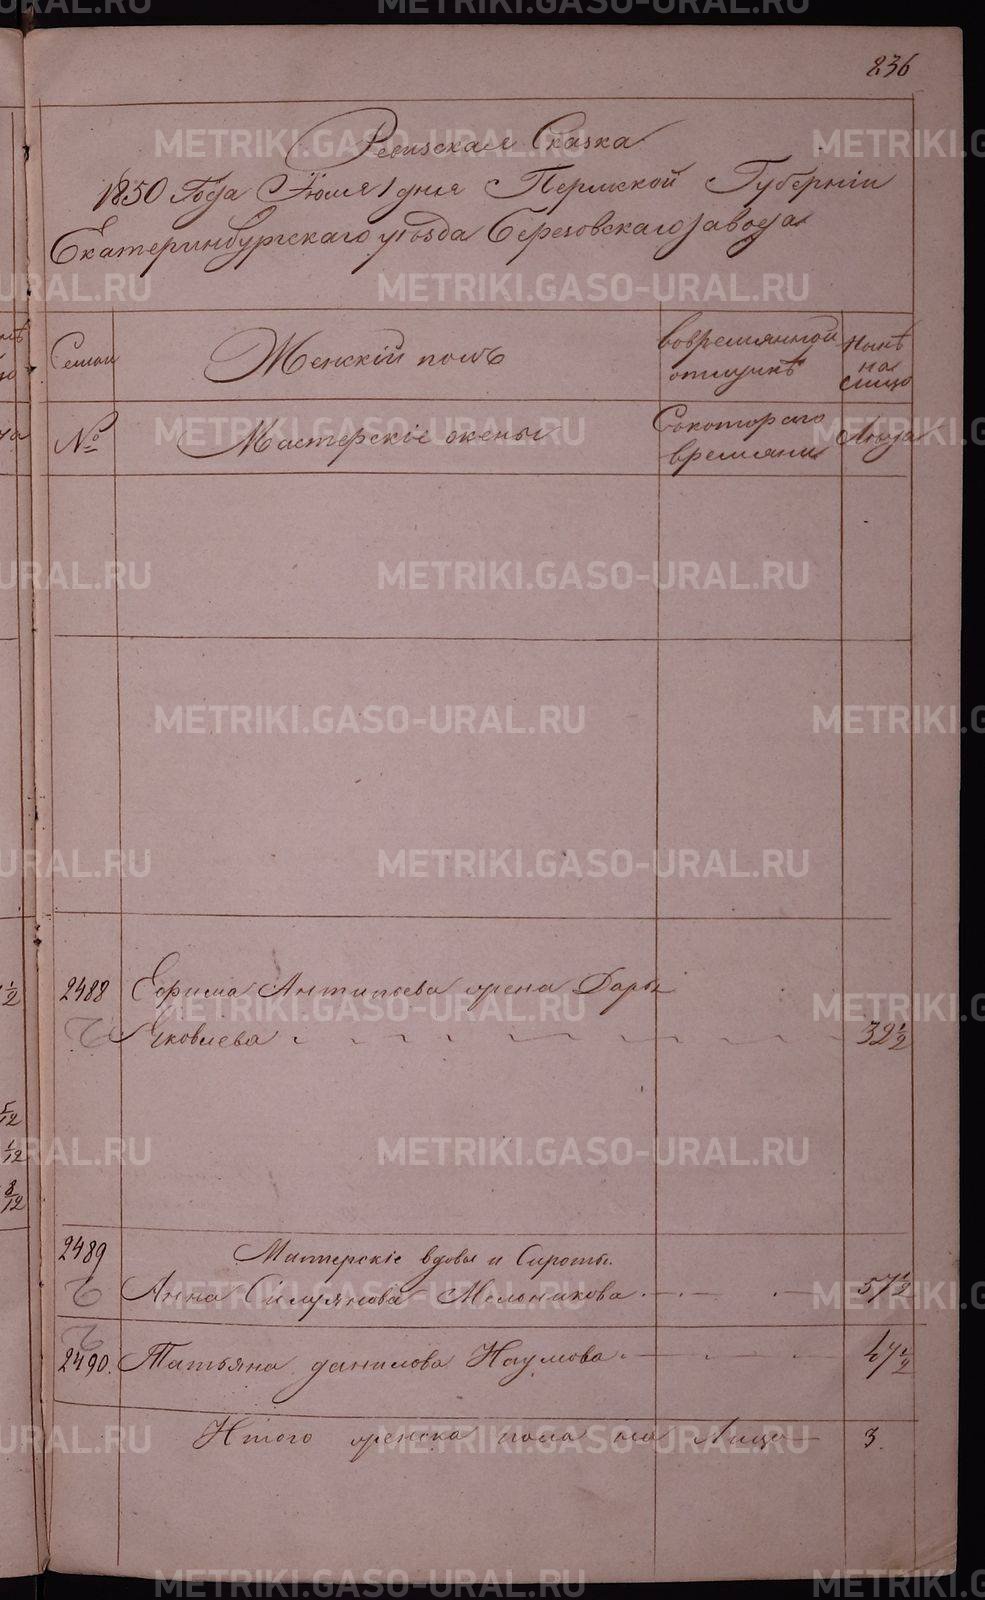 236
Ревизская Сказка
1850 Года Июля 1 дня Пермской Губернiи
Екатеринбургскаго уѣзда Березовскаго завода
Семьи
Женскiй полъ
вовремянной
отлучкѣ
Нынѣ
на
лицо
№
Мастерскiе жены
Скотораго
времяни
Лѣта
2488 Ефима Антипьева жена Дарья
Яковлева 32 1/2
2489 Мастерскiе вдовы и Сироты.
Анна Силуянова Мельникова 57 1/2
2490. Татьяна данилова Наумова 47 1/2
Итого женска пола на Лицо 3.
1/2
5/12
1/12
8/12
METRIKI.GASO-URAL.RU